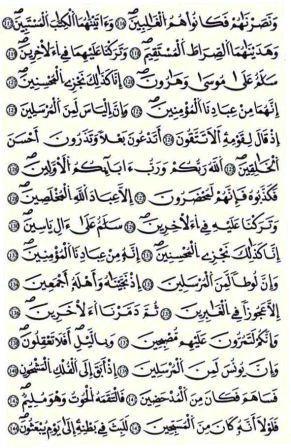 وَنَصَرْنَٰهُمْ فَكَانُوا هُمُ الْغَٰلِبِينَ وَءَاتَيْنَٰهُمَا الْكِتَٰبَ الْمُسْتَبِينَ
وَهَدَيْنَٰهُمَا الصِّرَٰطَ الْمُسْتَقِيمَ وَتَرَكْنَا عَلَيْهِمَا فِي الْءَاخِرِينَ
سَلَٰمٌ عَلَىٰ مُوسَىٰ وَهَٰرُونَ إِنَّا كَذَٰلِكَ نَجْزِي الْمُحْسِنِينَ
إِنَّهُمَا مِنْ عِبَادِنَا الْمُؤْمِنِينَ وَإِنَّ إِلْيَاسَ لَمِنَ الْمُرْسَلِينَ
إِذْ قَالَ لِقَوْمِهِ أَلَا تَتَّقُونَ أَتَدْعُونَ بَعْلًا وَتَذَرُونَ أَحْسَنَ
الْخَٰلِقِينَ اللَّهُ رَبُّكُمْ وَرَبُّ ءَابَائِكُمُ الْأَوَّلِينَ
فَكَذَّبُوهُ فَإِنَّهُمْ لَمُحْضَرُونَ إِلَّا عِبَادَ اللَّهِ الْمُخْلَصِينَ
وَتَرَكْنَا عَلَيْهِ فِي الْءَاخِرِينَ سَلَٰمٌ عَلَىٰ ءَالِ يَاسِينَ
إِنَّا كَذَٰلِكَ نَجْزِي الْمُحْسِنِينَ إِنَّهُ مِنْ عِبَادِنَا الْمُؤْمِنِينَ
وَإِنَّ لُوطًا لَمِنَ الْمُرْسَلِينَ إِذْ نَجَّيْنَٰهُ وَأَهْلَهُ أَجْمَعِينَ
إِلَّا عَجُوزًا فِي الْغَٰبِرِينَ ثُمَّ دَمَّرْنَا الْءَاخَرِينَ
وَإِنَّكُمْ لَتَمُرُّونَ عَلَيْهِم مُّصْبِحِينَ وَبِالَّيْلِ أَفَلَا تَعْقِلُونَ
وَإِنَّ يُونُسَ لَمِنَ الْمُرْسَلِينَ إِذْ أَبَقَ إِلَى الْفُلْكِ الْمَشْحُونِ
فَسَاهَمَ فَكَانَ مِنَ الْمُدْحَضِينَ فَالْتَقَمَهُ الْحُوتُ وَهُوَ مُلِيمٌ
فَلَوْلَا أَنَّهُ كَانَ مِنَ الْمُسَبِّحِينَ لَلَبِثَ فِي بَطْنِهِ إِلَىٰ يَوْمِ يُبْعَثُونَ